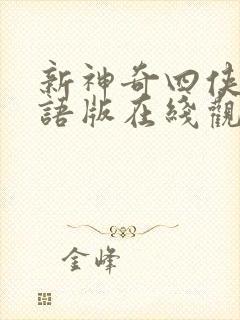 新神奇四俠
語版在綫觀
金峰